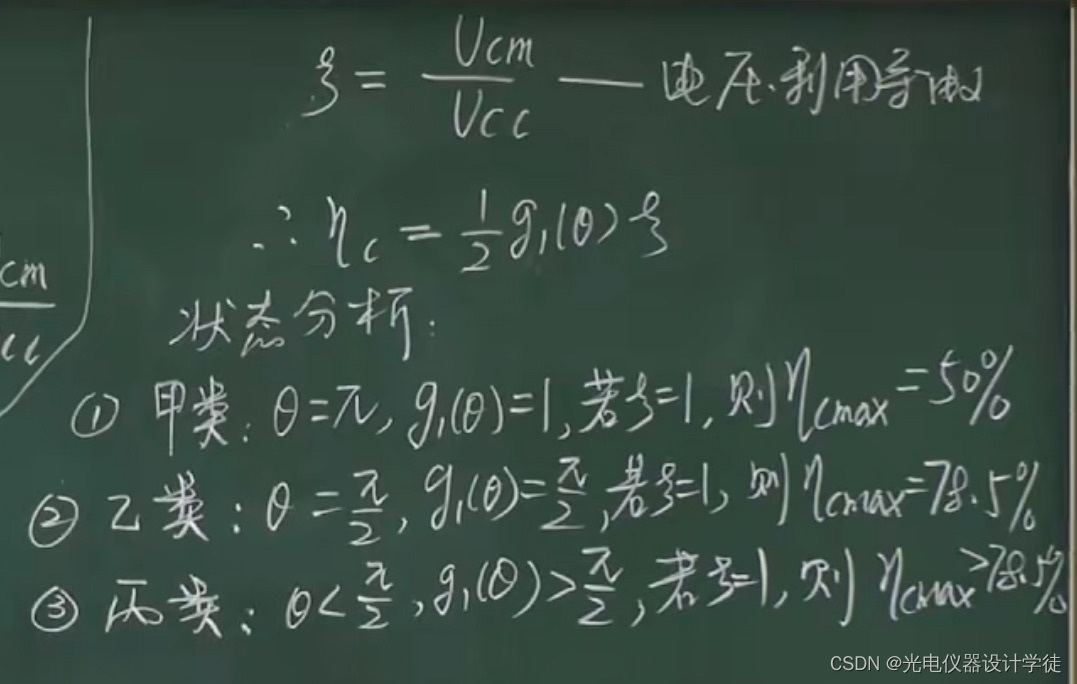 ξ = Ucm/Vcc —— 电压利用系数
∴ ηc = 1/2 g₁(θ) ξ
cm
cc
状态分析:
① 甲类: θ=π, g₁(θ)=1, 若ξ=1, 则 ηcmax=50%
② 乙类: θ=π/2, g₁(θ)=π/2, 若ξ=1, 则 ηcmax=78.5%
③ 丙类: θ<π/2, g₁(θ)>π/2, 若ξ=1, 则 ηcmax>78.5%
CSDN @光电仪器设计学徒